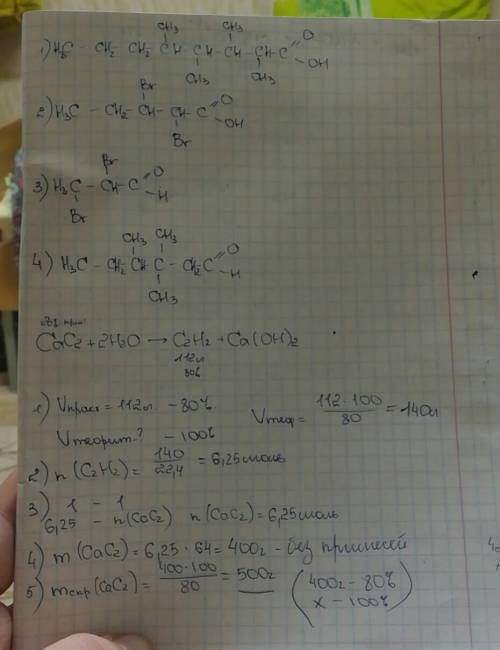 CH3 CH3
1) H3C - CH2 - CH2 - CH - CH - CH - CH - C = O
CH3 CH3 OH
Br
2) H3C - CH2 - CH - CH - C = O
Br OH
Br
3) H3C - CH - C = O
Br H
CH3 CH3
4) H3C - CH2 - CH - C - CH2 - C = O
CH3 H
CaC2 + 2H2O → C2H2 + Ca(OH)2
112л
80%
1) Vпракт = 112л - 80% Vтеор = 112·100/80 = 140л
Vтеорит.? - 100%
2) n(C2H2) = 140/22,4 = 6,25моль
3) 1 - 1
6,25 - n(CaC2) n(CaC2) = 6,25моль
4) m(CaC2) = 6,25·64 = 400г - без примесей
5) mспр(CaC2) = 400·100/80 = 500г (400г - 80%
x - 100%)